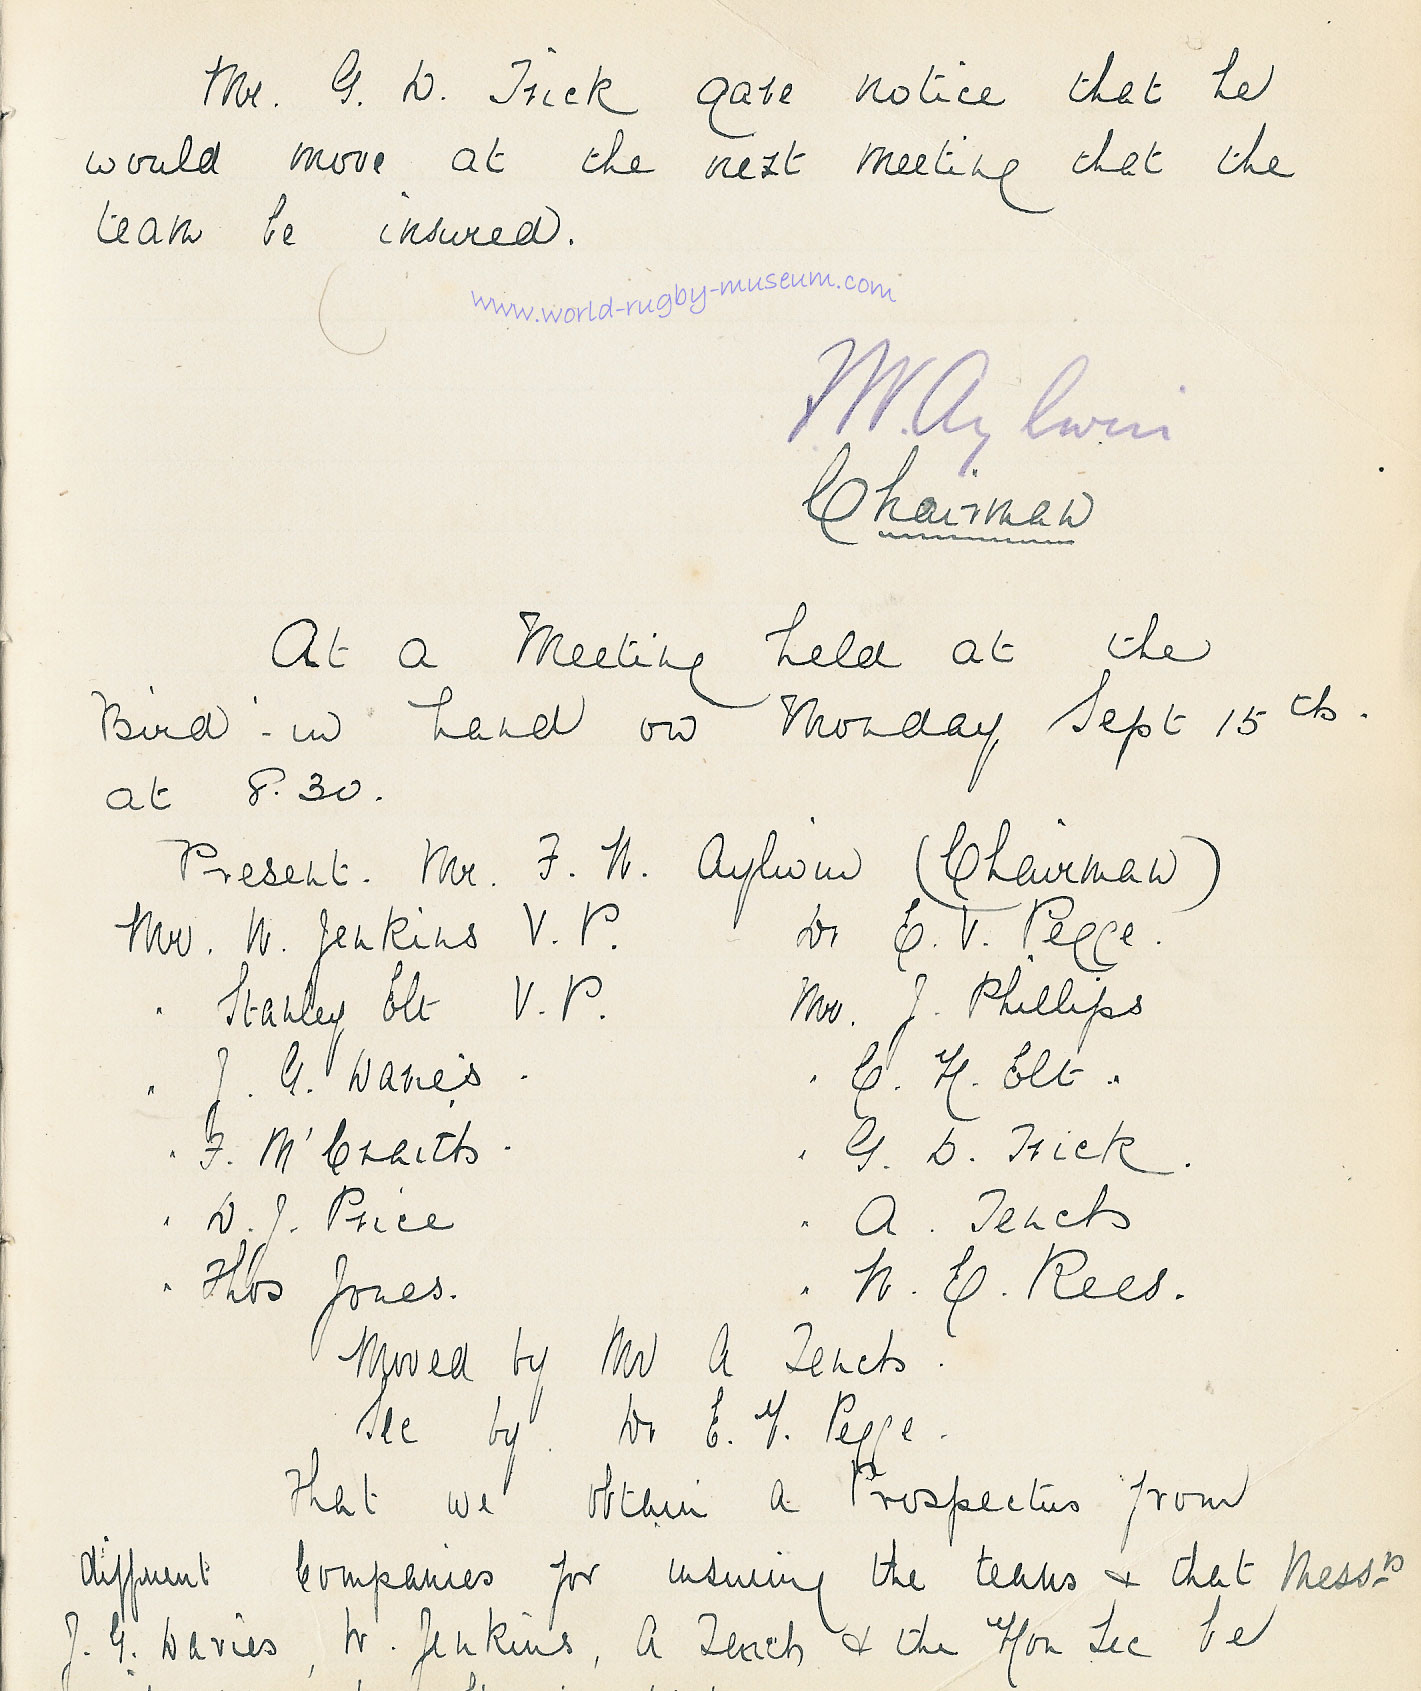 Mr. G. D. Trick gave notice that he
would move at the next meeting that the
team be insured.
www.world-rugby-museum.com
F W. Aylwin
Chairman
At a Meeting held at the
Bird-in hand on Monday Sept 15th.
at 8.30.
Present. Mr. F. W. Aylwin (Chairman)
Mr. W. Jenkins V. P. Dr E. V. Pegge.
" Stanley Elt V. P. Mr. J. Phillips
" J. G. Davies. " E. H. Elt.
" F. M'Craith. " G. D. Trick.
" D. J. Price " A. Tench
" Thos Jones. " W. E. Rees.
Moved by Mr A Tench.
Sec by Dr E. V. Pegge.
That we obtain a Prospectus from
different Companies for insuring the teams & that Messrs
J. G. Davies, W. Jenkins, A Tench & the Hon Sec be